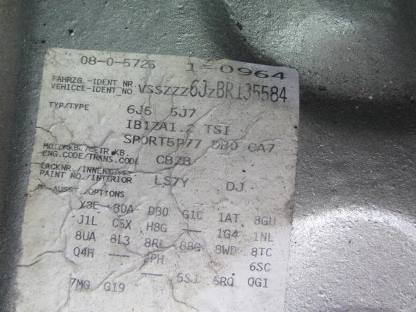 08-0-5726 1-0964
FAHRZG.-IDENT NR.
VEHICLE-IDENT NO. VSSZZZ6JZBR135584
TYP/TYPE 6J5 5J7
IBIZA1.2 TSI
SPORT5P77 D30 CA7
MOTORKB./GETR.KB.
ENG.CODE/TRANS.CODE CBZB
LACKNR./INNENAUS.
PAINT NO./INTERIOR LS7Y DJ
AUSST./OPTIONS
X3E 8DA D30 G1C 1AT 8GU
J1L C5X H8G -- 1G4 1NL
8UA 8L3 8RL 8WD 8TC
Q4H -- 6SC
7MG G19 5SJ 5RQ QGI